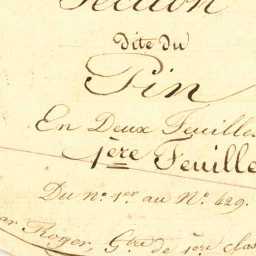 Section
dite du
Pin
En Deux Feuilles
1ère Feuille
Du n° 1er au N° 429.
par Royer, Gtre de 1ère clas